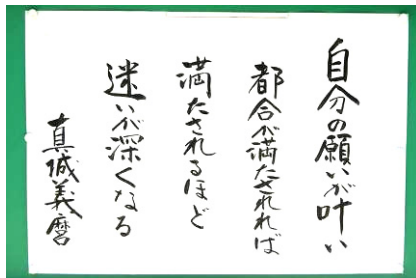 自分の願いが叶い
都合が満たされれば
満たされるほど
迷いが深くなる
真城義麿